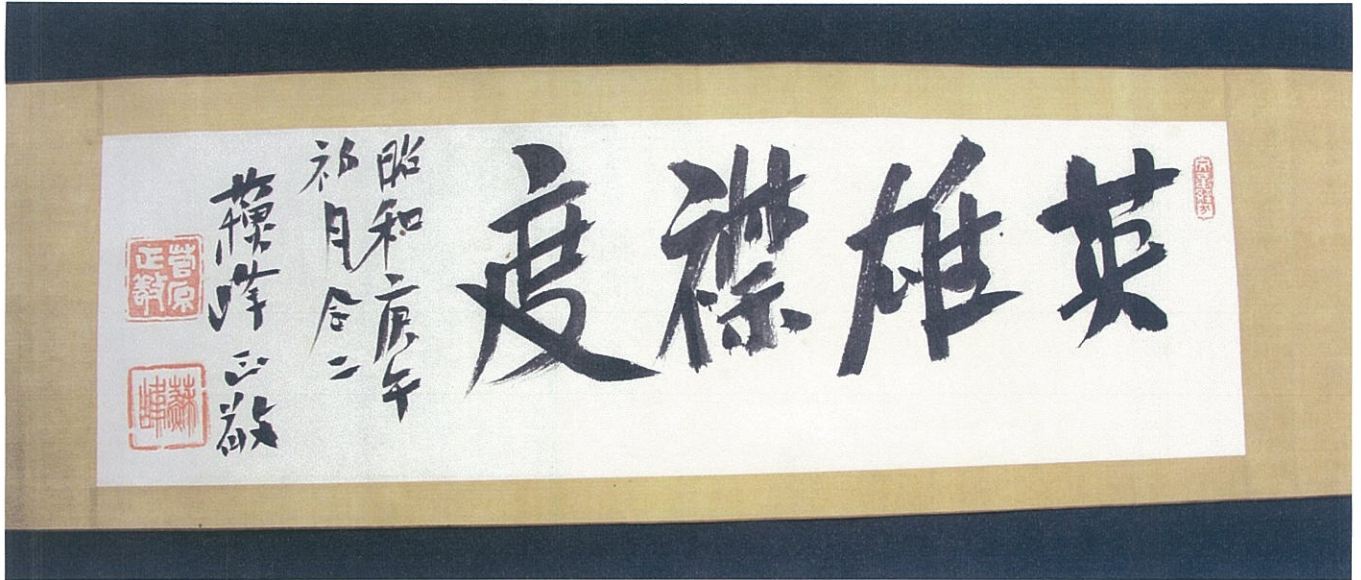 英雄襟度
昭和庚午
初月念二
蘇峰正敬
菅原正敬
蘇峰